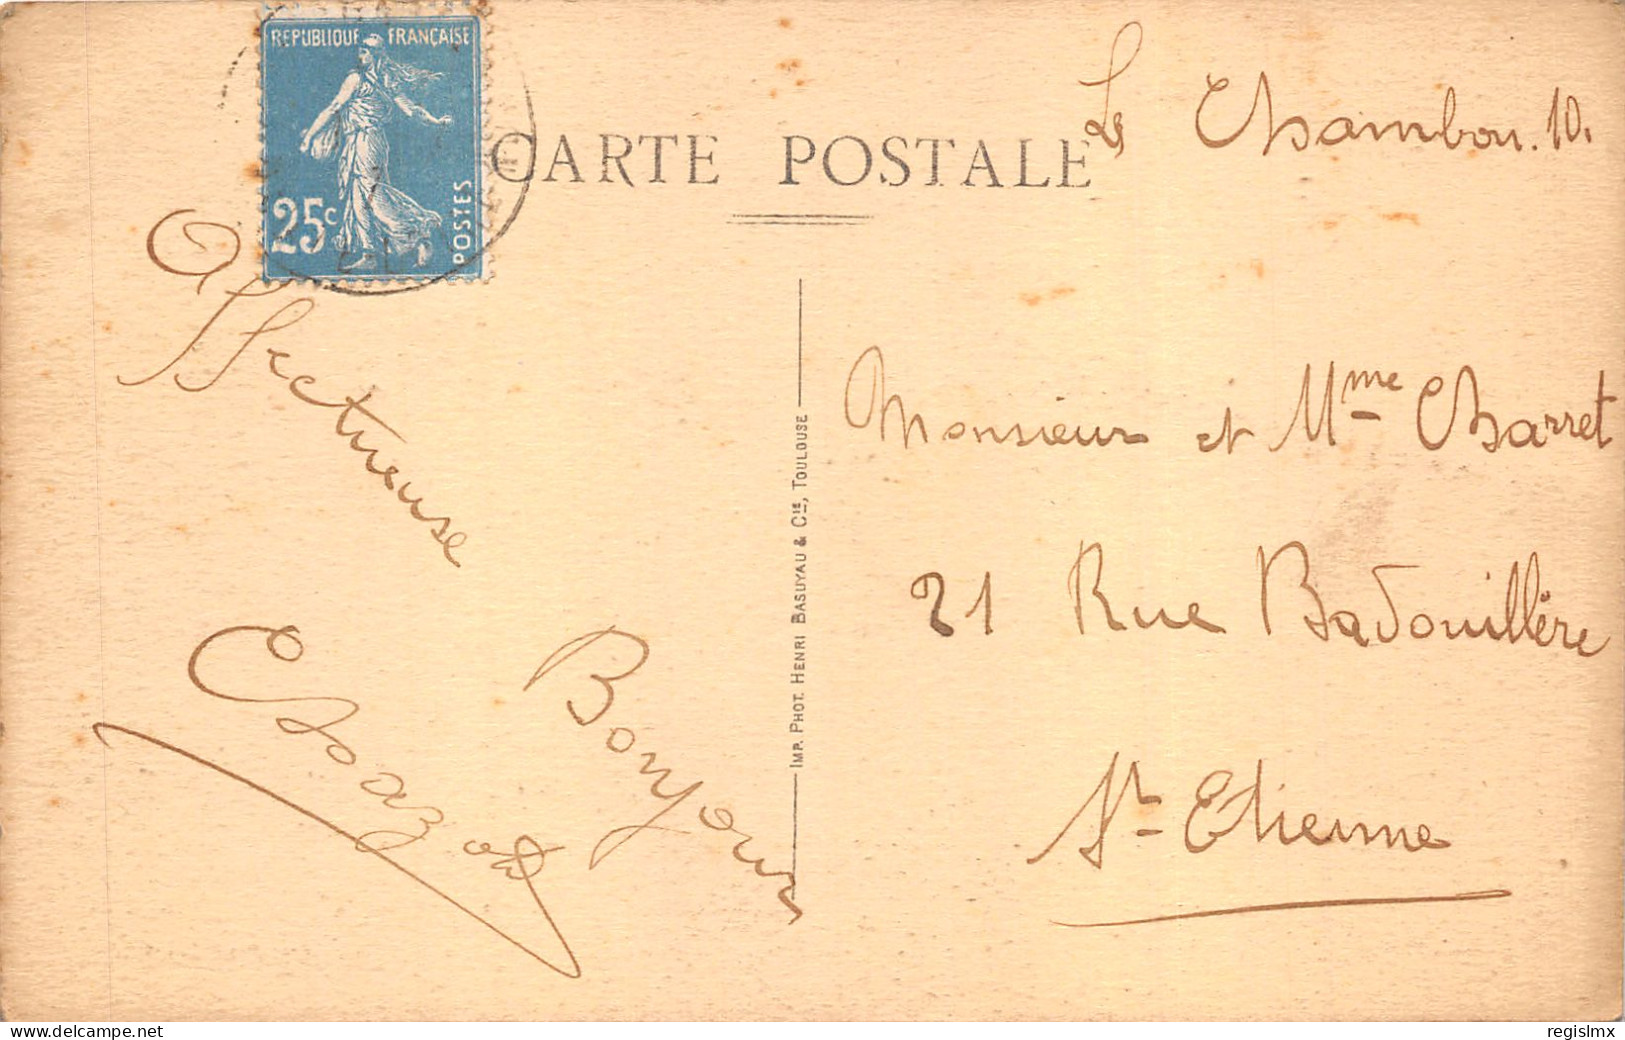 REPUBLIQUE FRANÇAISE
25c
POSTES
CARTE POSTALE
Le Chambon. 10.
Affectueuse
Bonjour
Monsieur et Mme Charret
21 Rue Badouillère
St-Etienne
IMP. PHOT. HENRI BASUYAU & Cie, TOULOUSE
regislmx
www.delcampe.net